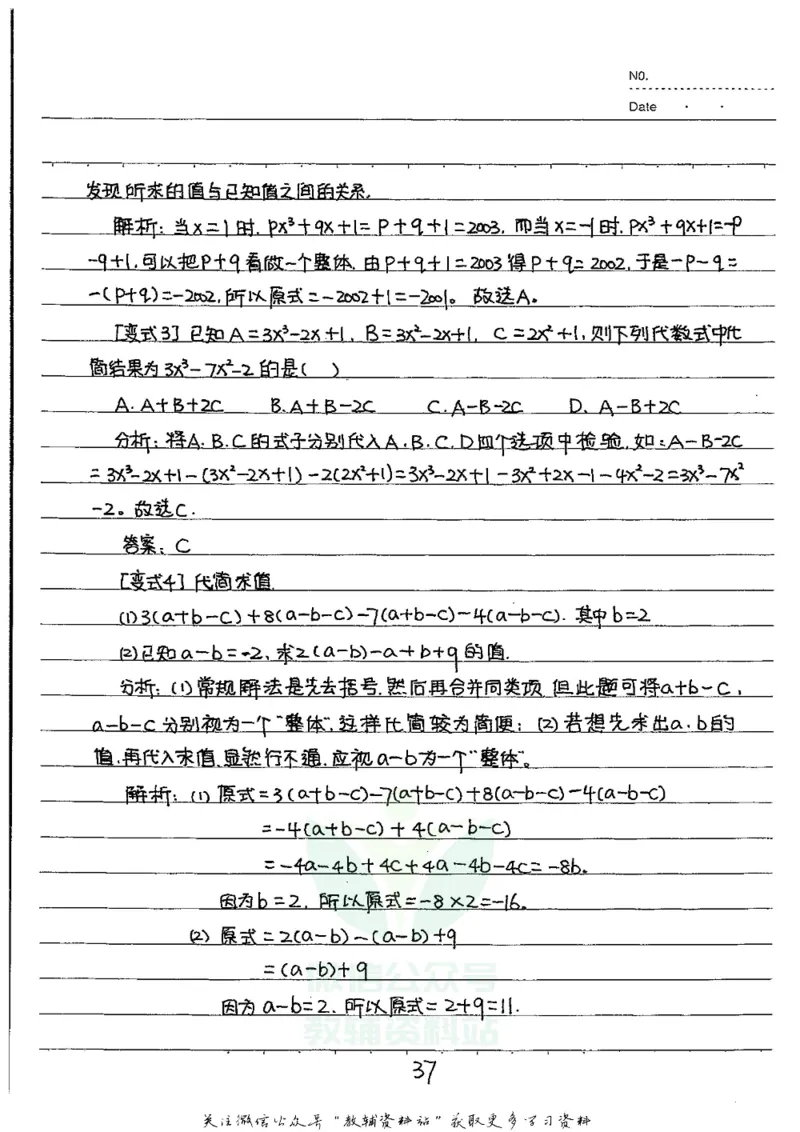 NO.
Date
发现所求的值与已知值之间的关系.
解析：当x=1时.px³+qx+1=p+q+1=2003,而当x=-1时.px³+qx+1=-p
-q+1,可以把p+q看做一个整体.由p+q+1=2003得p+q=2002,于是-p-q=
-(p+q)=-2002,所以原式=-2002+1=-2001。故选A。
[变式3]已知A=3x³-2x+1, B=3x²-2x+1, C=2x²+1,则下列代数式中化
简结果为3x³-7x²-2的是( )
A.A+B+2C B.A+B-2C C.A-B-2C D.A-B+2C
分析：将A.B.C的式子分别代入A.B.C.D四个选项中检验,如：A-B-2C
=3x³-2x+1-(3x²-2x+1)-2(2x²+1)=3x³-2x+1-3x²+2x-1-4x²-2=3x³-7x²
-2。故选C.
答案：C
[变式4]化简求值.
(1)3(a+b-c)+8(a-b-c)-7(a+b-c)-4(a-b-c).其中b=2
(2)已知a-b=-2,求2(a-b)-a+b+9的值.
分析：(1)常规解法是先去括号.然后再合并同类项.但此题可将a+b-c,
a-b-c分别视为一个“整体”,这样化简较为简便；(2)若想先求出a.b的
值.再代入求值.显然行不通.应视a-b为一个“整体”。
解析：(1)原式=3(a+b-c)-7(a+b-c)+8(a-b-c)-4(a-b-c)
=-4(a+b-c)+4(a-b-c)
=-4a-4b+4c+4a-4b-4c=-8b。
因为b=2,所以原式=-8×2=-16。
(2)原式=2(a-b)-(a-b)+9
=(a-b)+9
因为a-b=2.所以原式=2+9=11.
微信公众号
教辅资料站
37
关注微信公众号“教辅资料站”获取更多学习资料